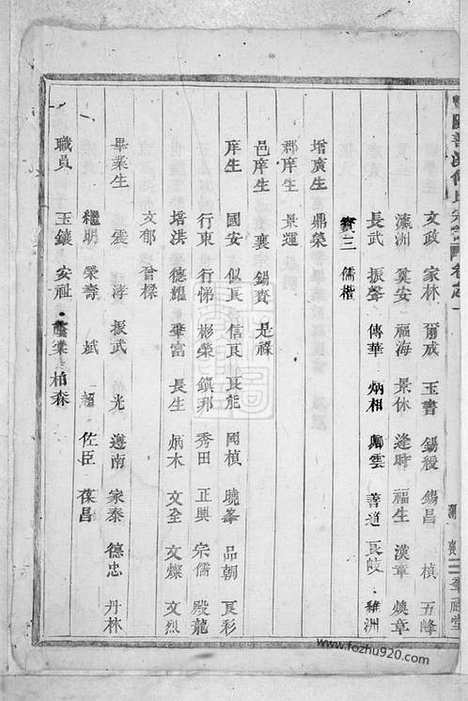 文政 家林 爾成 玉書 錫綬 錫昌 楨 五峰
瀛洲 奠安 福海 景休 逢時 福生 漢章 煥章
長武 振聲 傳華 炳相 卿雲 善道 良皎 雞洲
賚三 儒楷
增廣生 鼎榮
郡庠生 景運
邑庠生 襄 錫賚 是祿
庠生 國安 似良 信良 良能 國楨 曉峯 品朝 良彩
行東 行悌 彬榮 鎮邦 秀田 正興 宗儒 殿龍
培洪 德耀 肇富 長生 炳木 文全 文燦 文烈
文郁 曾樑
畢業生 雲 濤 振武 光 邁南 家泰 德忠 丹林
繼明 榮壽 斌 超 佐臣 葆昌
職員 玉鑲 安祉 蔭業 柏森
www.fozhu920.com